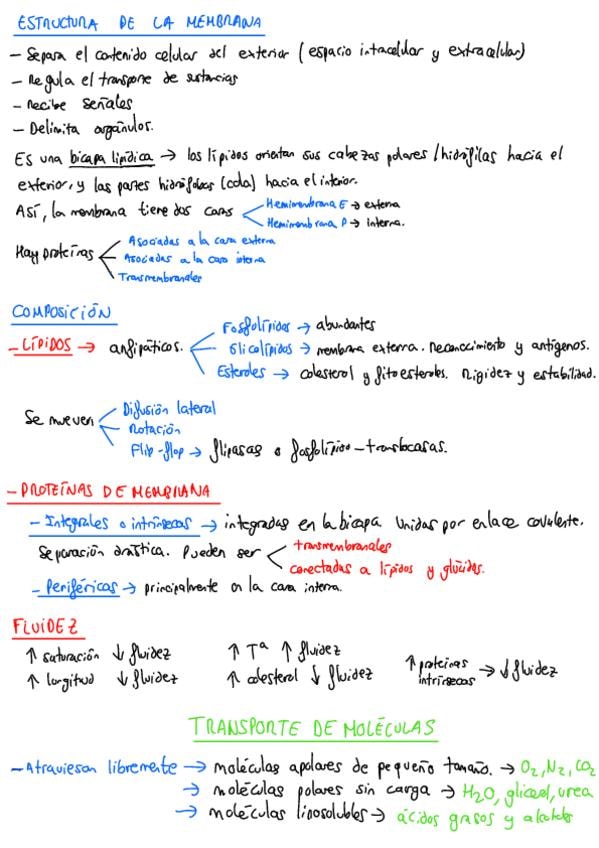 ESTRUCTURA DE LA MEMBRANA
- Separa el contenido celular del exterior (espacio intracelular y extracelular)
- Regula el transporte de sustancias
- Recibe señales
- Delimita orgánulos.
Es una bicapa lipídica → los lípidos orientan sus cabezas polares / hidrófilas hacia el
exterior, y las partes hidrófobas (cola) hacia el interior.
Así, la membrana tiene dos caras
Hemimembrana E → externa
Hemimembrana P → interna.
Hay proteínas
Asociadas a la cara externa
Asociadas a la cara interna
Transmembranales
COMPOSICIÓN
- LÍPIDOS → anfipáticos.
Fosfolípidos → abundantes
Glicolípidos → membrana externa. Reconocimiento y antígenos.
Esteroles → colesterol y fitoesteroles. Rigidez y estabilidad.
Se mueven
Difusión lateral
Rotación
Flip-flop → flipasas o fosfolípido-translocasas.
- PROTEÍNAS DE MEMBRANA
- Integrales o intrínsecas → integradas en la bicapa. Unidas por enlace covalente.
Separación drástica. Pueden ser
transmembranales
conectadas a lípidos y glúcidos.
- Periféricas → principalmente en la cara interna.
FLUIDEZ
↑ saturación ↓ fluidez ↑ Tª ↑ fluidez ↑ proteínas intrínsecas → ↓ fluidez
↑ longitud ↓ fluidez ↑ colesterol ↓ fluidez
TRANSPORTE DE MOLÉCULAS
- Atraviesan libremente → moléculas apolares de pequeño tamaño. → O2, N2, CO2
→ moléculas polares sin carga → H2O, glicerol, urea
→ moléculas liposolubles → ácidos grasos y alcoholes